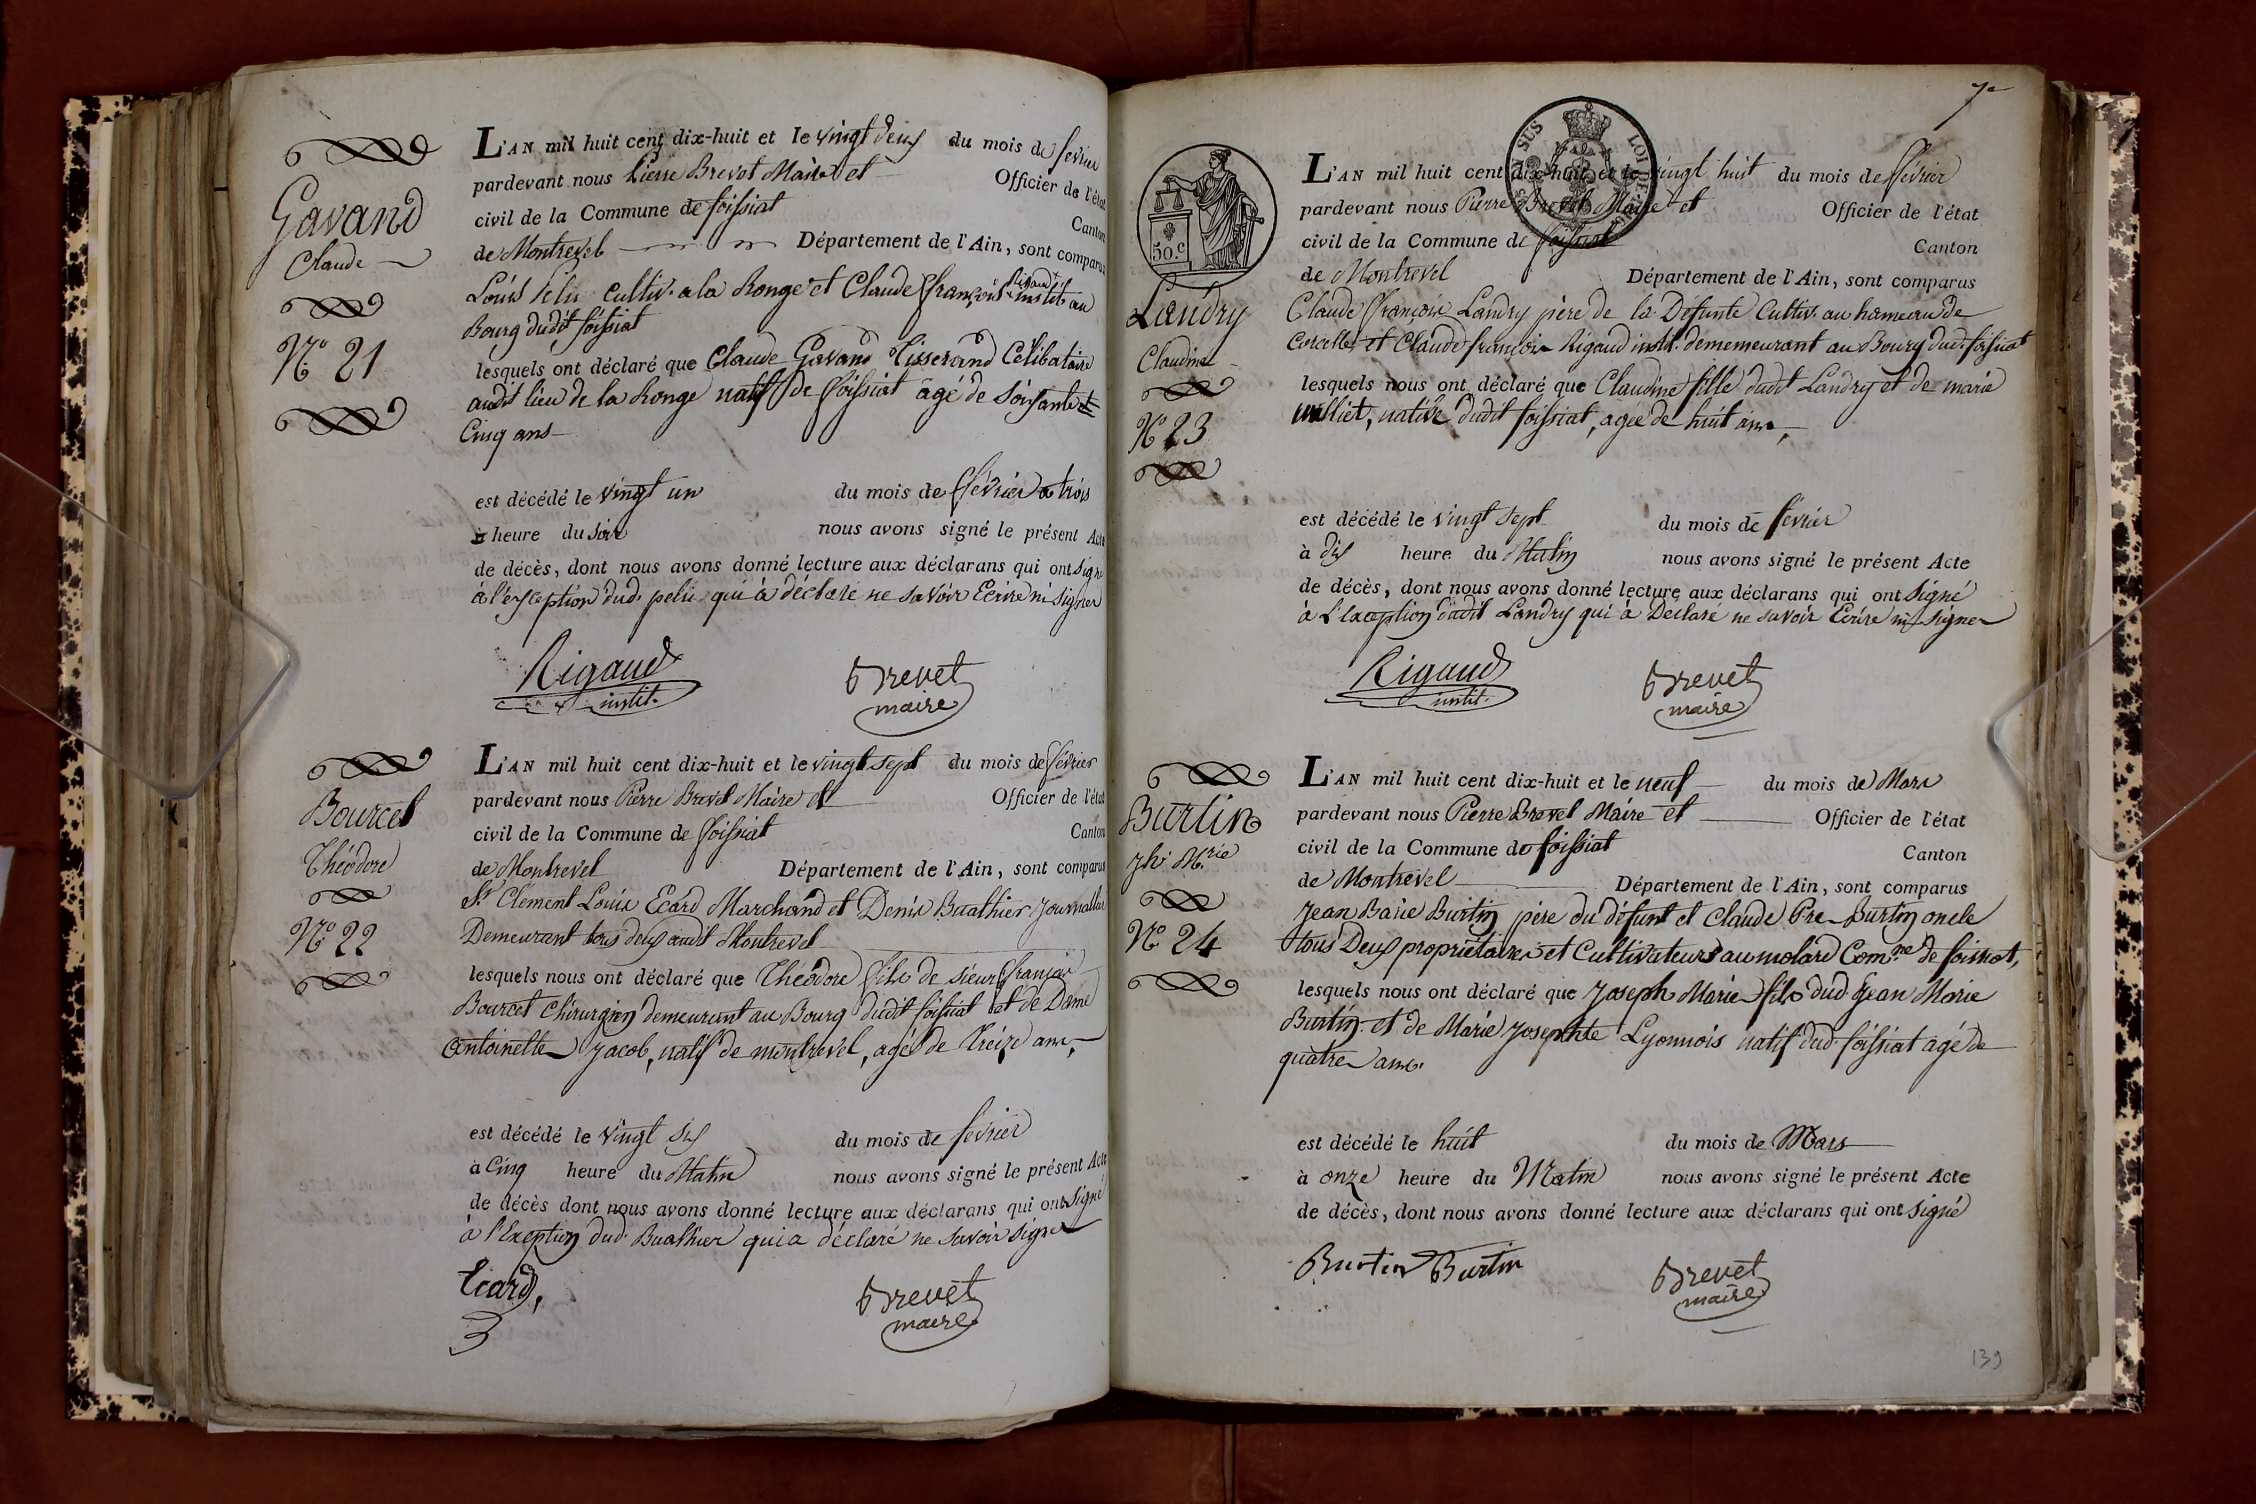 Gavand
Claude
N.o 21
L'AN mil huit cent dix-huit et le vingt deux du mois de fevrier
pardevant nous Pierre Brevet Maire et Officier de l'état
civil de la Commune de foissiat Canton
de Montrevel Département de l'Ain, sont comparus
Louis Pelu cultiv. a la Ronge et Claude françois Rigaud instit. au
Bourg dudit foissiat
lesquels ont déclaré que Claude Gavand Tisserand Célibataire
audit lieu de la Ronge natif de foissiat agé de soixante et
Cinq ans
est décédé le vingt un du mois de février a trois
heure du soir nous avons signé le présent Acte
de décès, dont nous avons donné lecture aux déclarans qui ont signé
à l'exception dud. pelu qui à déclaré ne savoir Ecrire ni signer
Rigaud
instit.
Brevet
maire
Bourcet
Théodore
N.o 22
L'AN mil huit cent dix-huit et le vingt sept du mois de février
pardevant nous Pierre Brevet Maire et Officier de l'état
civil de la Commune de foissiat Canton
de Montrevel Département de l'Ain, sont comparus
Sr. Clément Louis Ecard Marchand et Denis Buathier Journallier
Demeurant tous deux audit Montrevel
lesquels nous ont déclaré que Théodore fils de sieur françois
Bourcet chirurgien demeurant au Bourg dudit foissiat et de Dame
Antoinette Jacob, natif de montrevel, agé de Treize ans,
est décédé le vingt six du mois de février
à Cinq heure du Matin nous avons signé le présent Acte
de décès dont nous avons donné lecture aux déclarans qui ont signé
à l'Exeption dud. Buathier qui a déclaré ne savoir signer
Ecard,
Brevet
maire
50.c
LOI DE
Landry
Claudine
N.o 23
L'AN mil huit cent dix-huit et le vingt huit du mois de février
pardevant nous Pierre Brevet Maire et Officier de l'état
civil de la Commune de foissiat Canton
de Montrevel Département de l'Ain, sont comparus
Claude François Landry père de la Défunte Cultiv. au hameau de
Corcelles et Claude françois Rigaud instit. dememeurant au Bourg dud. foissiat
lesquels nous ont déclaré que Claudine fille dudit Landry et de marie
milliet, native dudit foissiat, agée de huit ans,
est décédé le vingt sept du mois de fevrier
à dix heure du Matin nous avons signé le présent Acte
de décès, dont nous avons donné lecture aux déclarans qui ont signé
à L'exception dudit Landry qui à Déclaré ne savoir Ecrire ni signer
Rigaud
instit.
Brevet
maire
Burtin
Jh. M.rie
N.o 24
L'AN mil huit cent dix-huit et le neuf du mois de Mars
pardevant nous Pierre Brevet Maire et Officier de l'état
civil de la Commune de foissiat Canton
de Montrevel Département de l'Ain, sont comparus
Jean Burtin père du défunt et Claude Burtin oncle
tous Deux propriétaires et Cultivateurs au molard Com.ne de foissiat,
lesquels nous ont déclaré que Joseph Marie fils dud. Jean Marie
Burtin et de Marie Josephte Lyonnois natif dud. foissiat agé de
quatre ans.
est décédé le huit du mois de Mars
à onze heure du Matin nous avons signé le présent Acte
de décès, dont nous avons donné lecture aux déclarans qui ont signé
Burtin Burtin
Brevet
maire
139